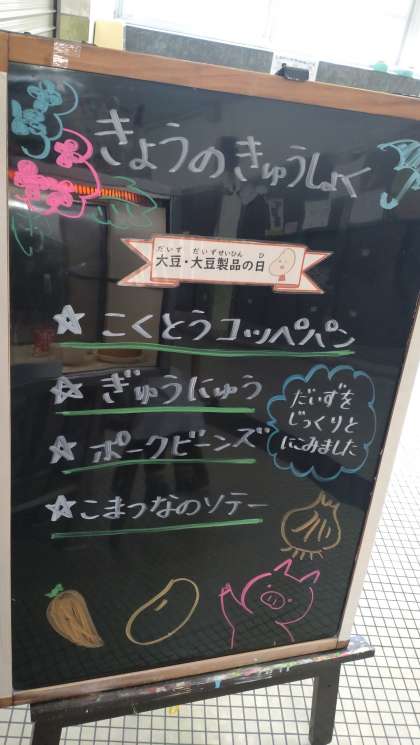 きょうのきゅうしょく
だいず だいずせいひん ひ
大豆・大豆製品の日
☆こくとうコッペパン
☆ぎゅうにゅう
☆ポークビーンズ
だいずを
じっくりと
にこみました
☆こまつなのソテー